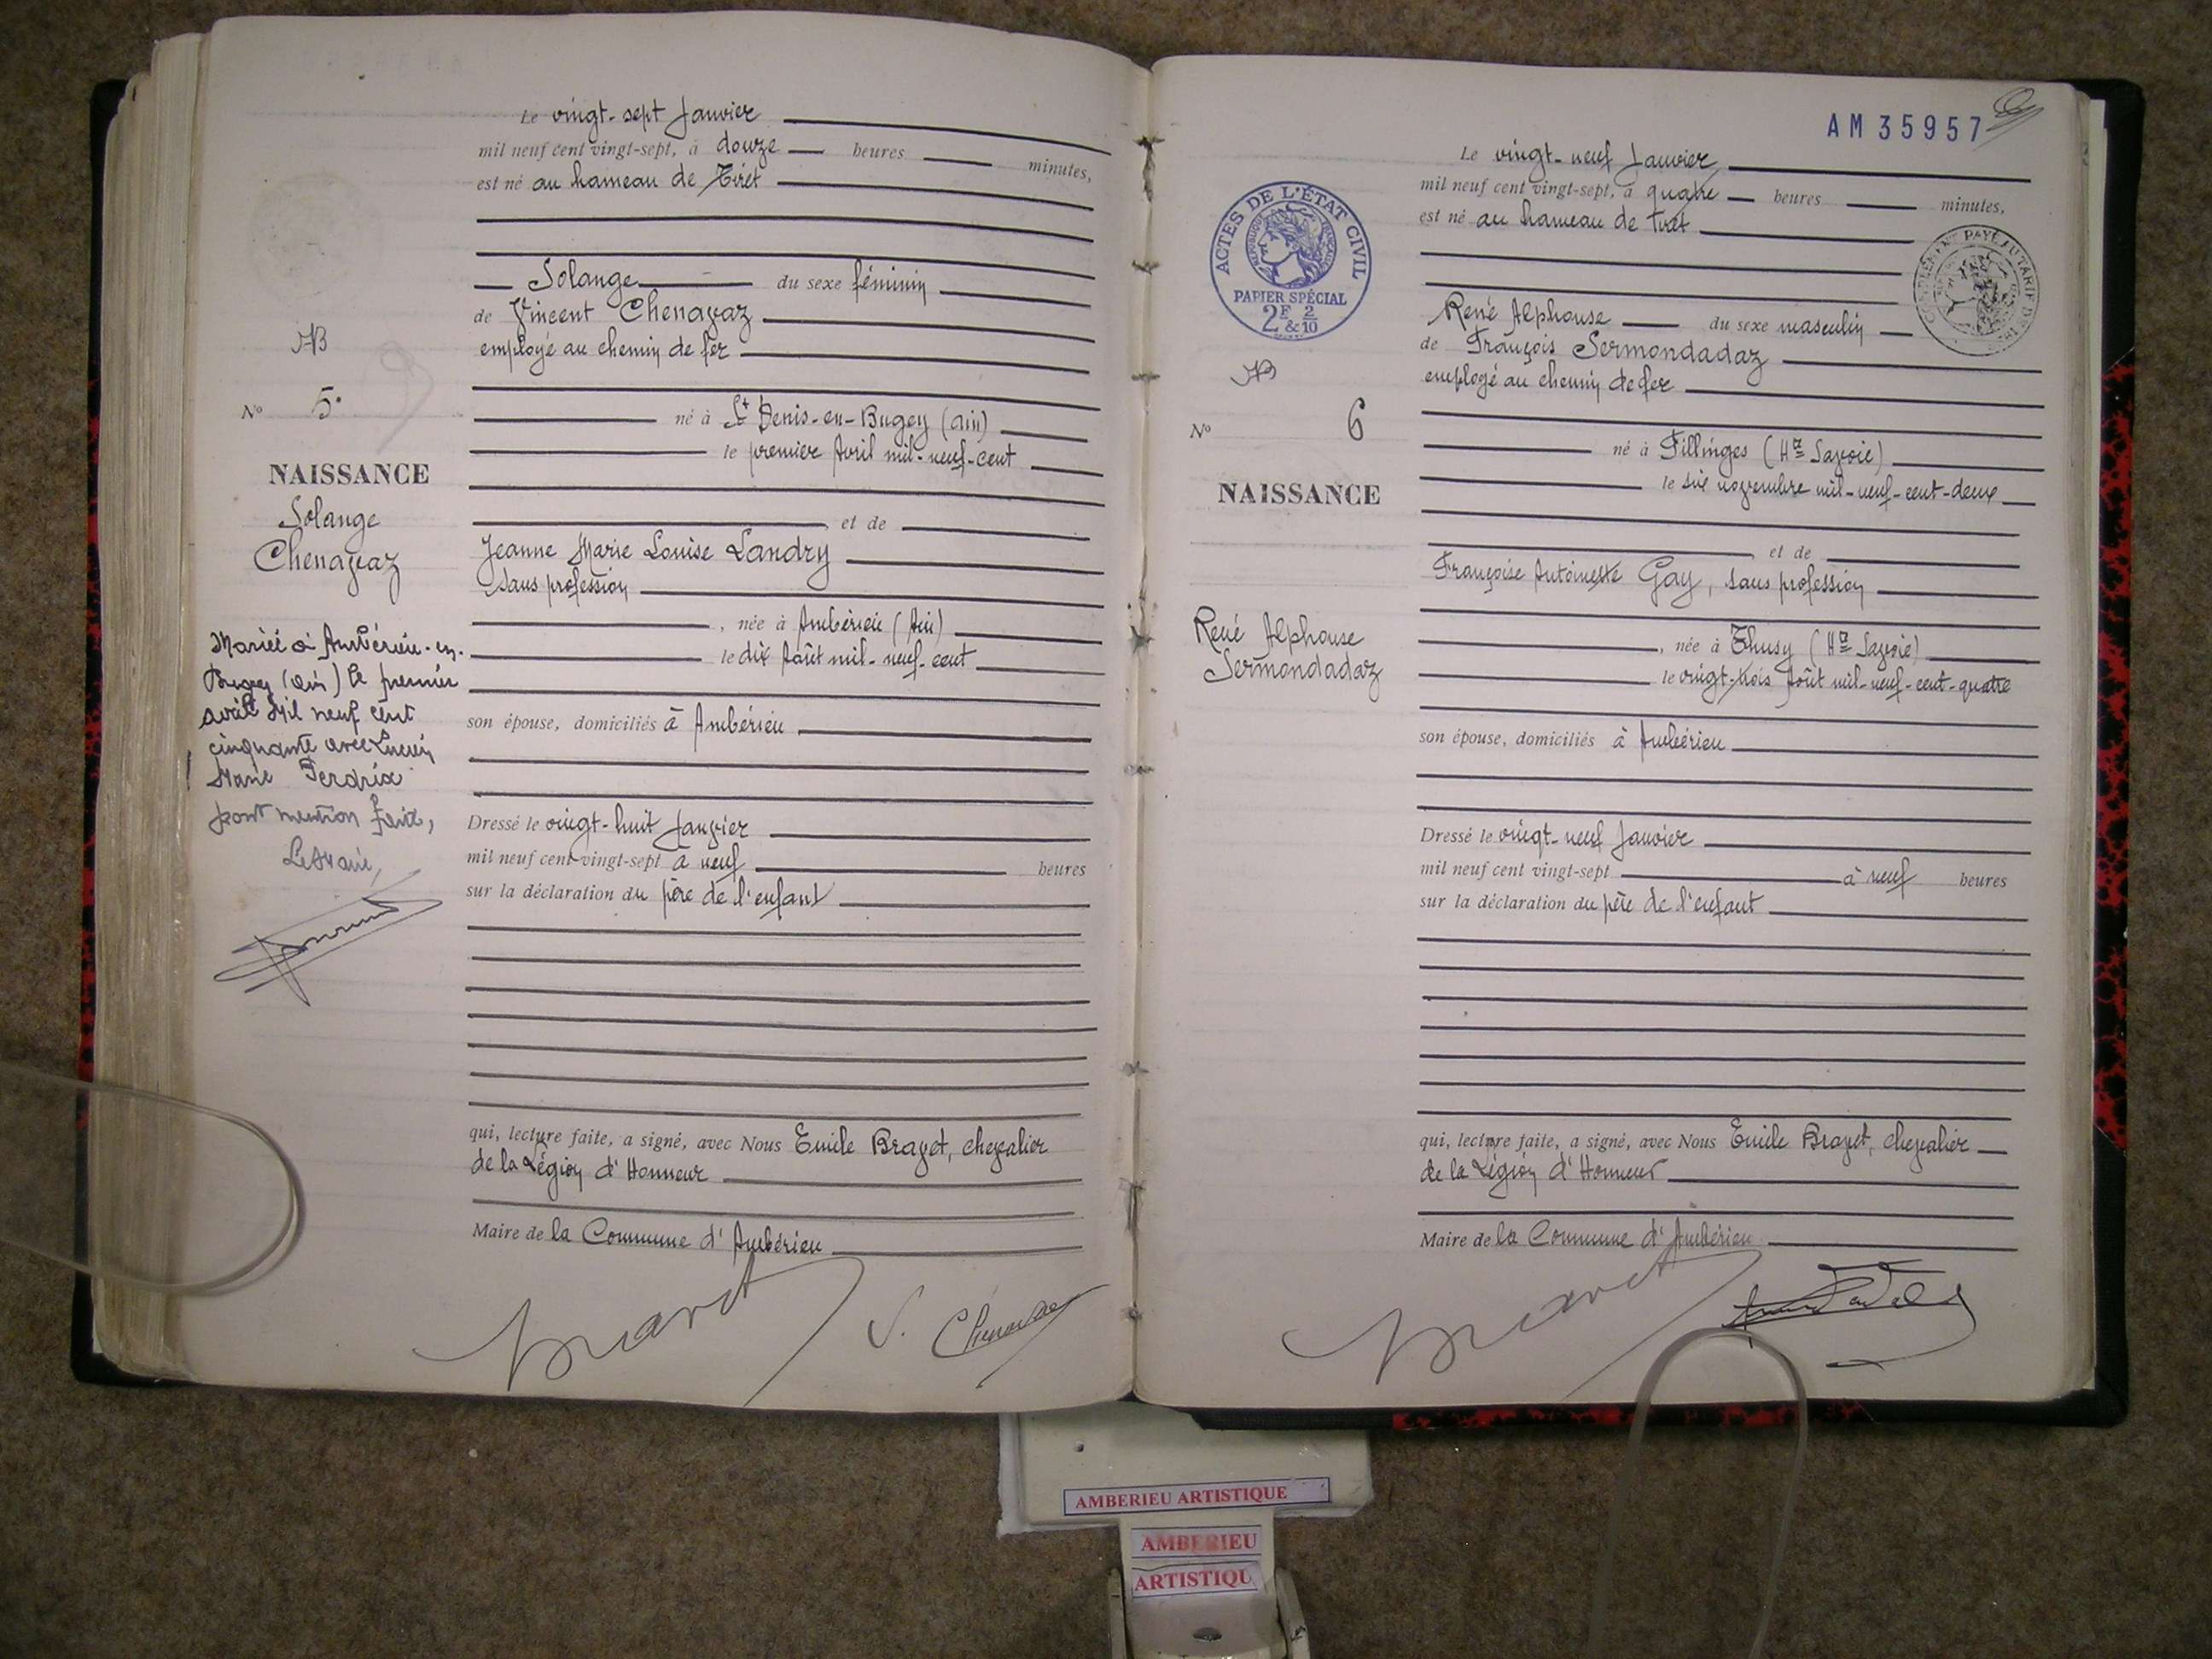 Le vingt-sept Janvier
mil neuf cent vingt-sept, à douze heures minutes,
est né au hameau de Tiret
Solange du sexe féminin
de Vincent Chenavaz
employé au chemin de fer
né à St Denis-en-Bugey (Ain)
le premier Avril mil-neuf-cent
et de
Jeanne Marie Louise Landry
sans profession
, née à Ambérieu (Ain)
le dix Août mil-neuf-cent
son épouse, domiciliés à Ambérieu
Dressé le vingt-huit Janvier
mil neuf cent vingt-sept à neuf heures
sur la déclaration du père de l'enfant
qui, lecture faite, a signé, avec Nous Emile Bravet, chevalier
de la Légion d'Honneur
Maire de la Commune d'Ambérieu
Bravet
V. Chenavaz
No 5
NAISSANCE
Solange
Chenavaz
Mariée à Ambérieu-en-
Bugey (Ain) le premier
avril Mil neuf cent
cinquante avec Lucien
Marie Perdrix
dont mention faite,
Le Maire,
AM 35957
Le vingt-neuf Janvier
mil neuf cent vingt-sept, à quatre heures minutes,
est né au hameau de Tiret
René Alphonse du sexe masculin
de François Sermondadaz
employé au chemin de fer
né à Fillinges (Hte Savoie)
le six novembre mil-neuf-cent-deux
et de
Françoise Antoinette Gay, sans profession
, née à Thusy (Hte Savoie)
le vingt-trois Août mil-neuf-cent-quatre
son épouse, domiciliés à Ambérieu
Dressé le vingt-neuf Janvier
mil neuf cent vingt-sept à neuf heures
sur la déclaration du père de l'enfant
qui, lecture faite, a signé, avec Nous Emile Bravet, chevalier
de la Légion d'Honneur
Maire de la Commune d'Ambérieu
Bravet
ACTES DE L'ÉTAT CIVIL
RÉPUBLIQUE FRANÇAISE
PAPIER SPÉCIAL
2F & 2/10
No 6
NAISSANCE
René Alphonse
Sermondadaz
AMBERIEU ARTISTIQUE
AMBERIEU
ARTISTIQU